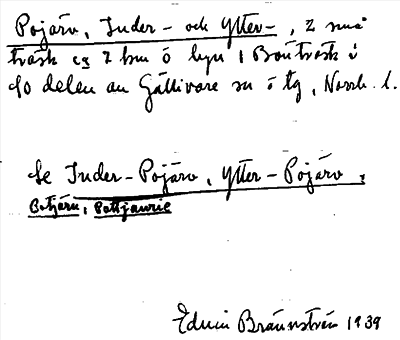 Pojärv, Inder- och Ytter-, 2 små
träsk ca 7 km ö byn Bouträsk i
sö delen av Gällivare sn ö tg, Norrb. l.
Se Inder-Pojärv, Ytter-Pojärv,
Botjärn, Pottjaurie
Edvin Brännström 1939